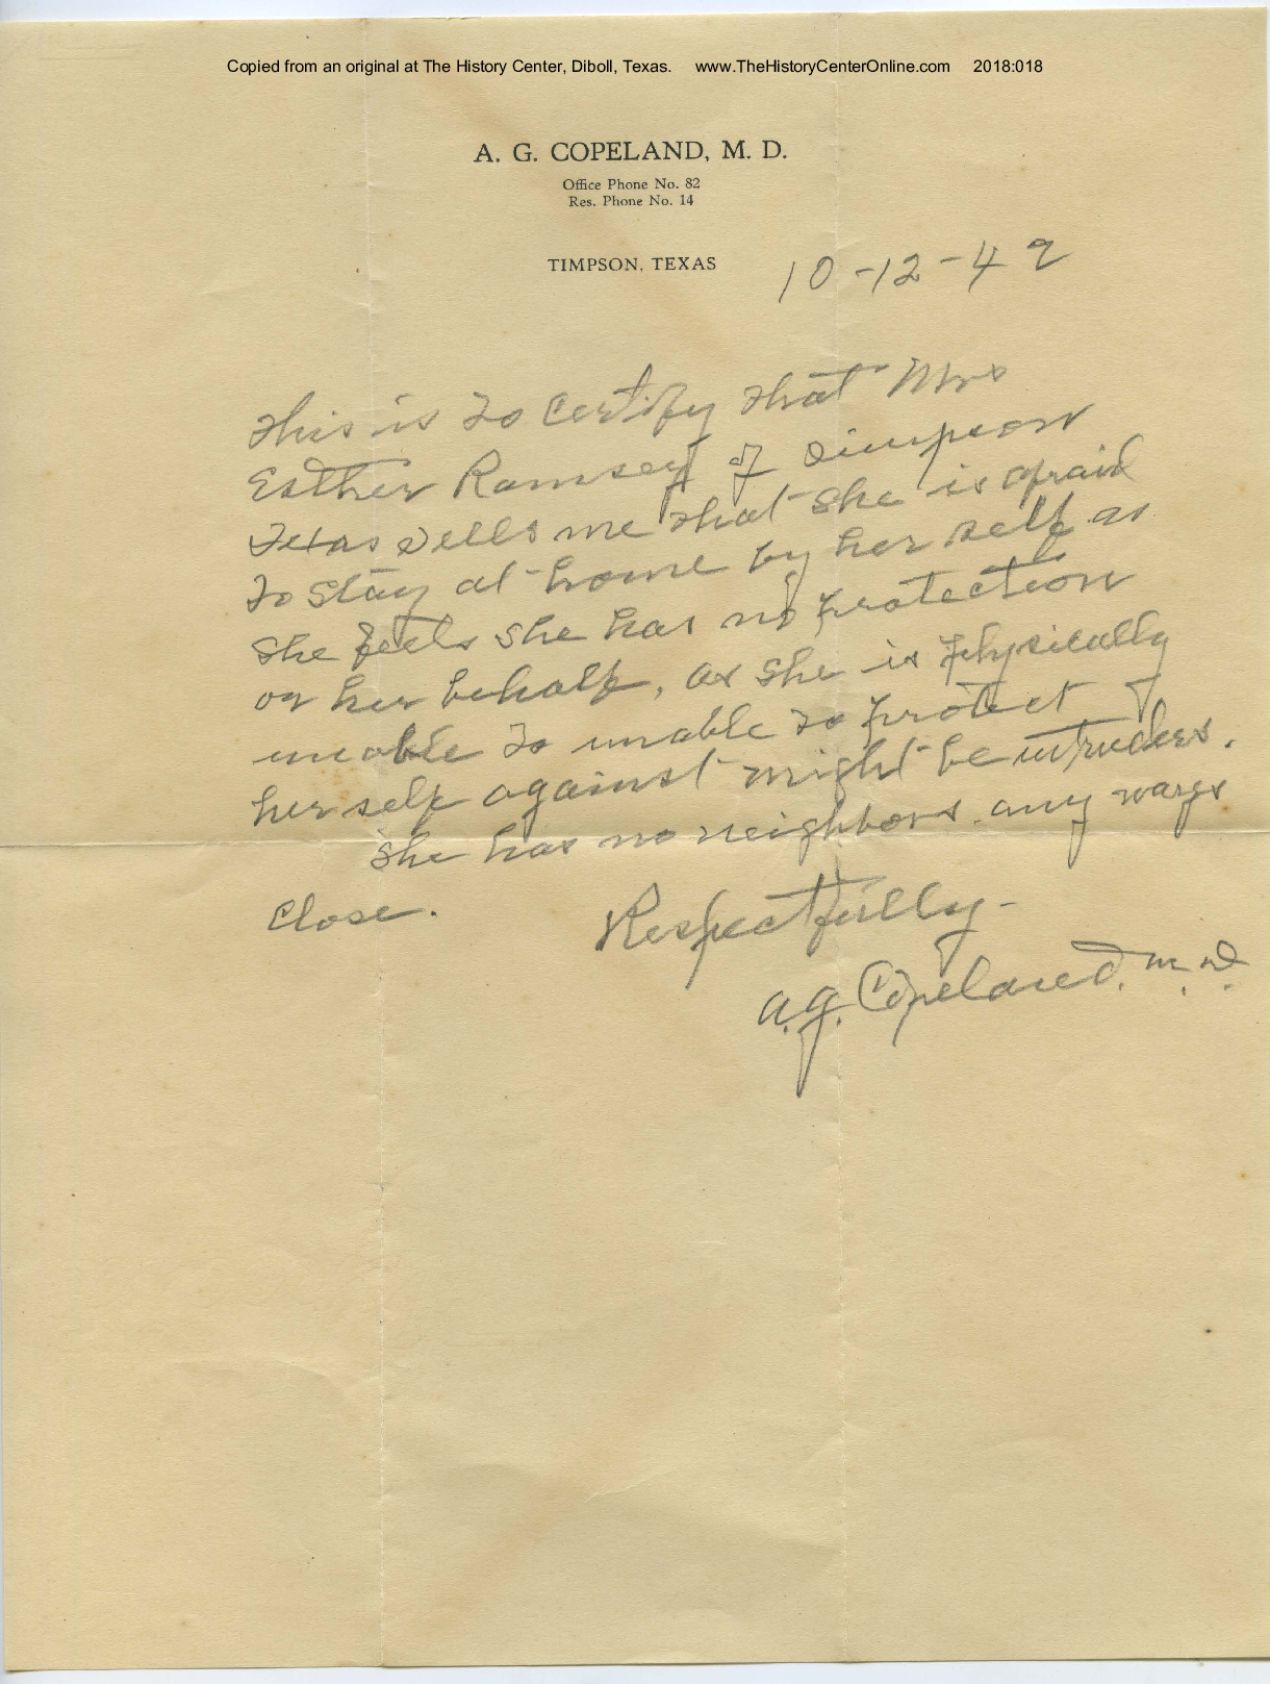 Copied from an original at The History Center, Diboll, Texas. www.TheHistoryCenterOnline.com 2018:018
A. G. COPELAND, M. D.
Office Phone No. 82
Res. Phone No. 14
TIMPSON, TEXAS
10-12-42
This is to certify that Mrs
Esther Ramsey of Timpson
Texas tells me that she is afraid
to stay at home by her self as
she feels she has no protection
on her behalf, as she is physically
unable to unable to protect
her self against might be intruders.
She has no neighbors any ways
close.
Respectfully-
A.G. Copeland, M.D.